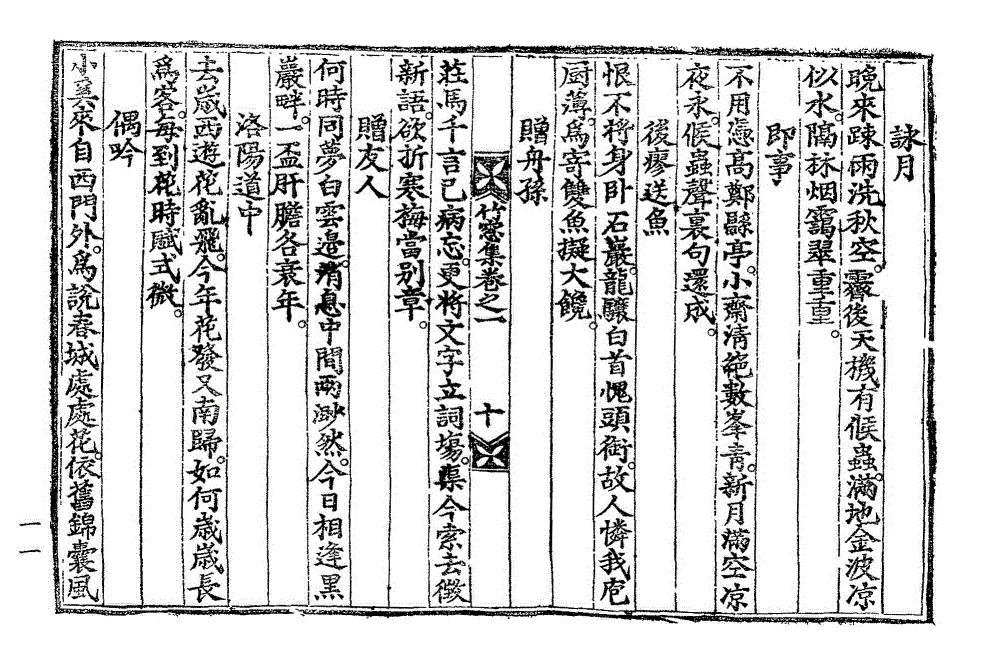 詠月
晩來踈雨洗秋空。霽後天機有候蟲。滿地金波凉
似水。隔林烟靄翠重重。
即事
不用憑高鄭縣亭。小齋淸絶數峯靑。新月滿空凉
夜永。候蟲聲裏句還成。
後瘳送魚
恨不將身卧石巖。龍驤白首愧頭銜。故人憐我庖
厨薄。爲寄雙魚擬大饞。
贈舟孫
竹窓集卷之一
十
莊馬千言已病忘。更將文字立詞塲。渠今索去徵
新語。欲折寒梅當別章。
贈友人
何時同夢白雲邉。消息中間兩渺然。今日相逢黑
巖畔。一盃肝膽各衰年。
洛陽道中
去歲西遊花亂飛。今年花發又南歸。如何歲歲長
爲客。每到花時賦式微。
偶吟
小奚來自西門外。爲說春城處處花。依舊錦囊風
一一